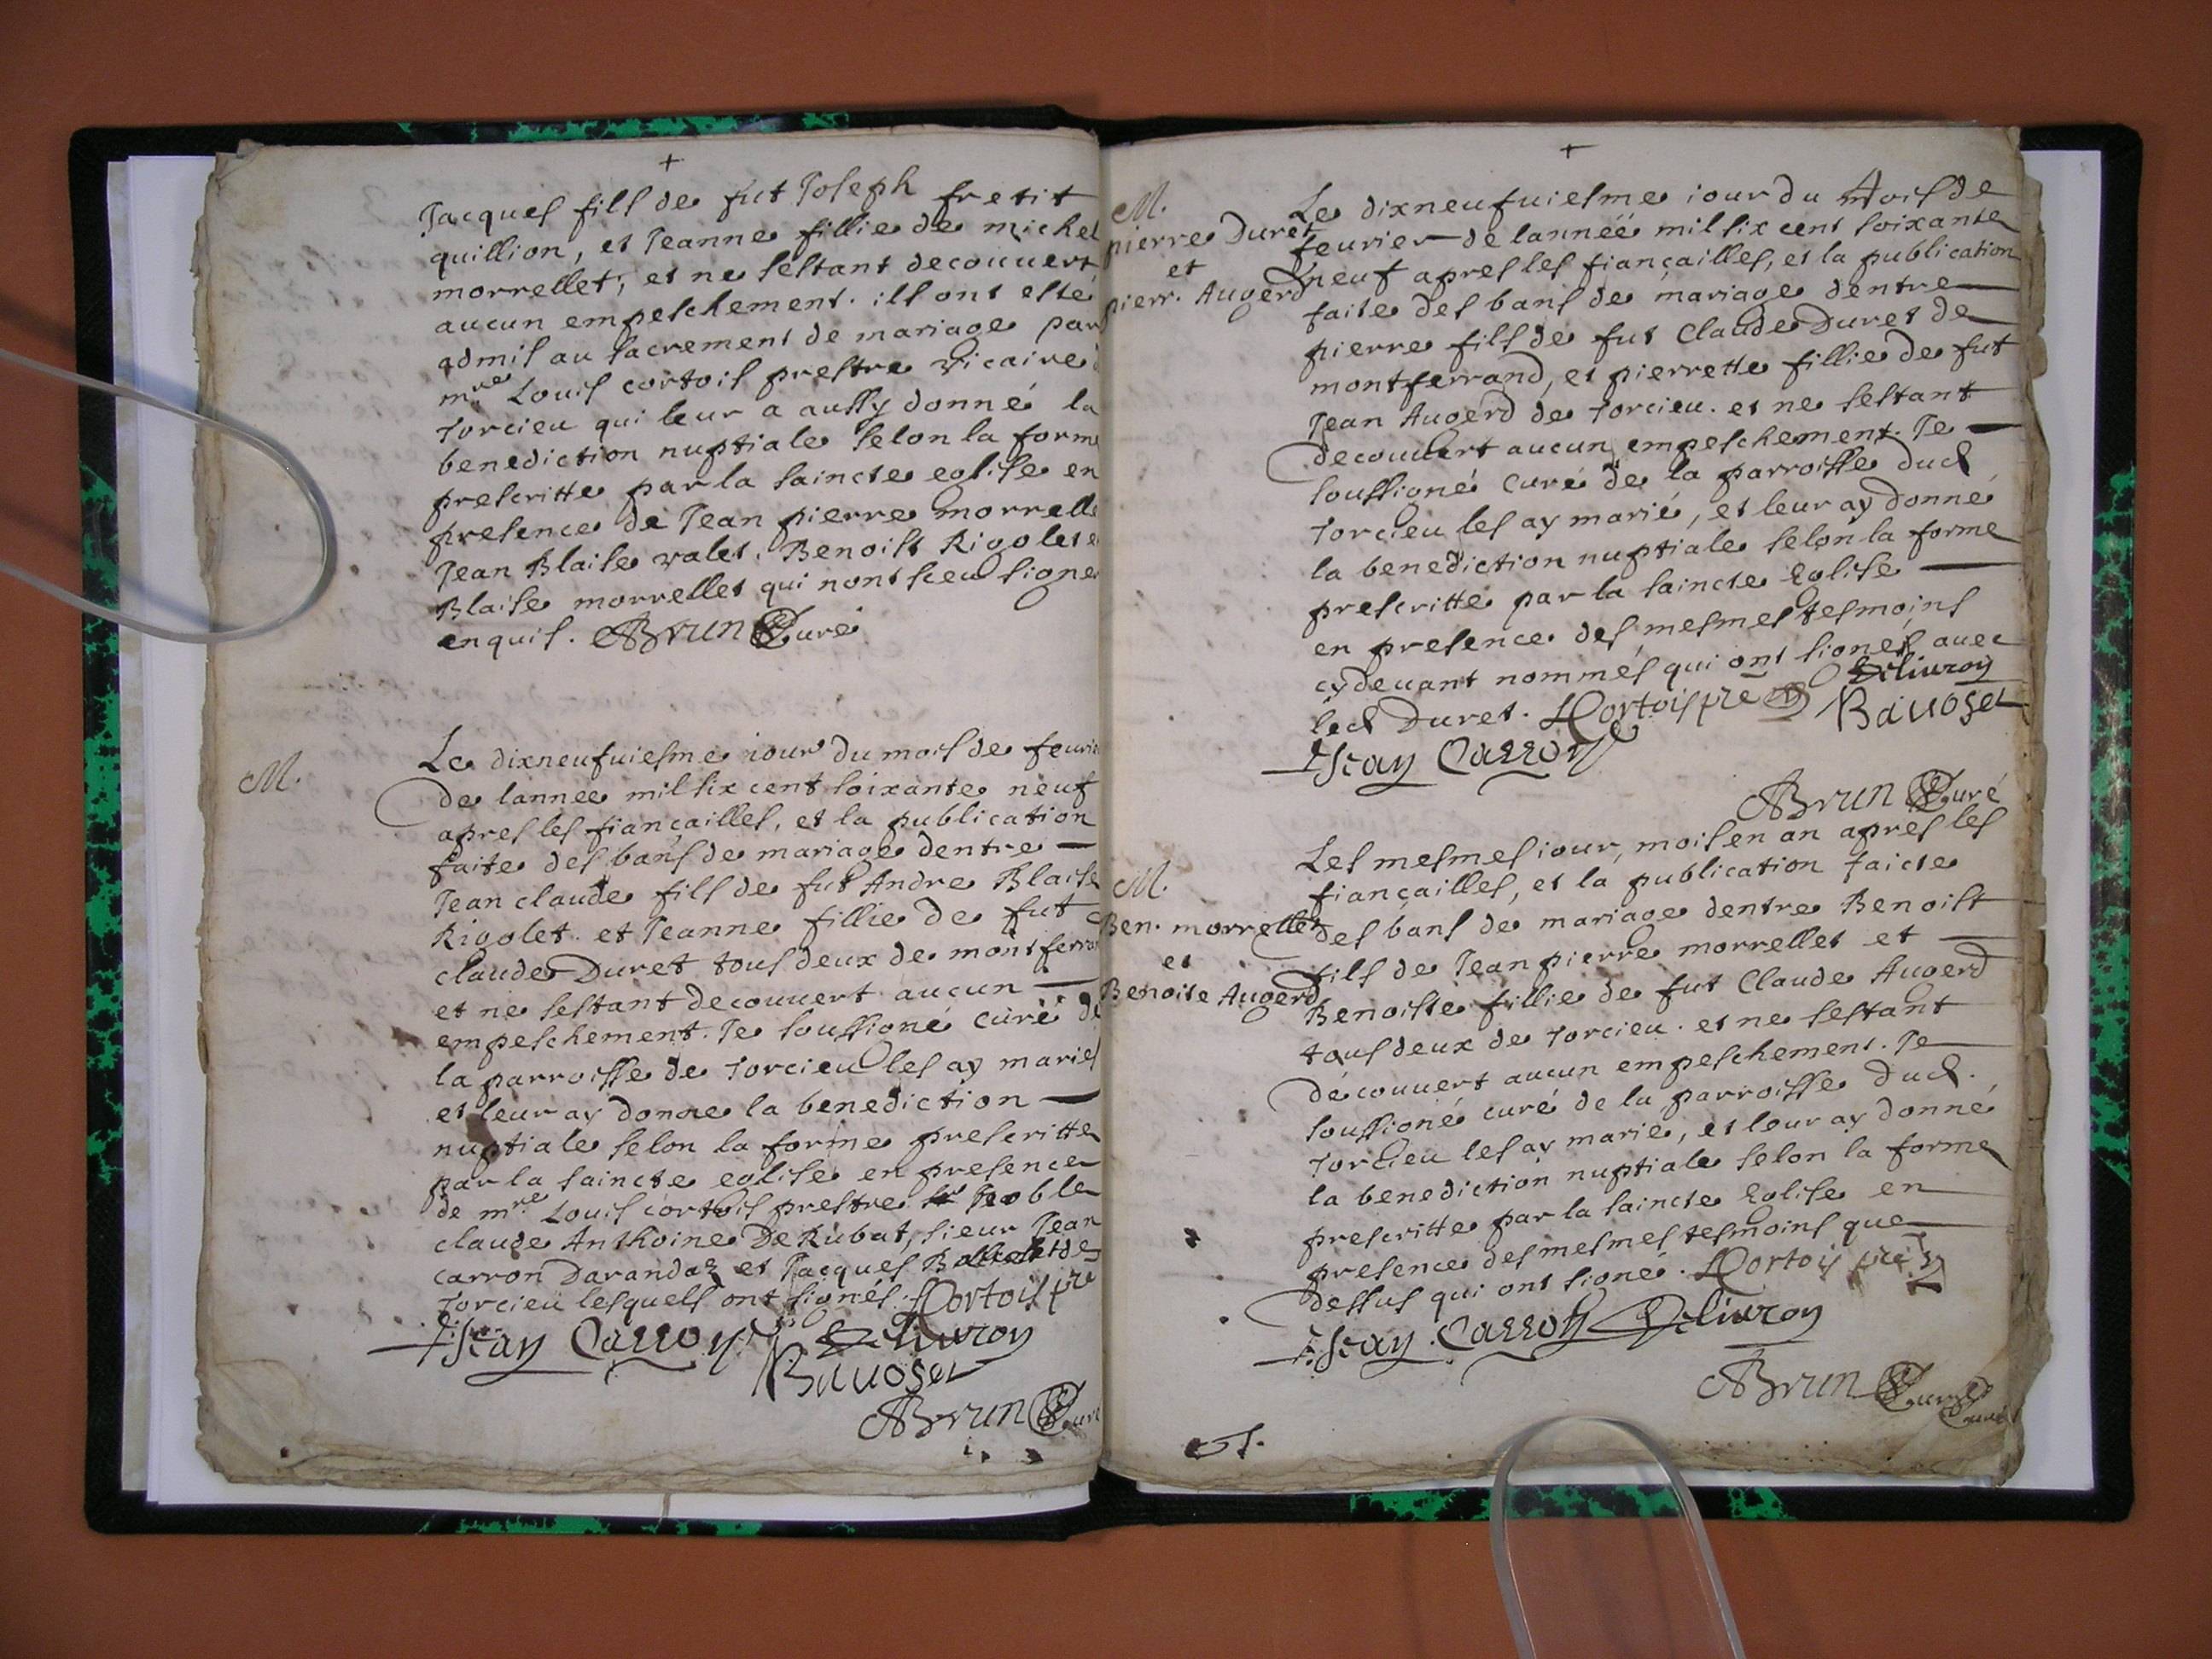 +
Jacques fils de fut Joseph fretit
quillion, et Jeanne fillie de michel
morrellet, et ne sestant decouuert
aucun empeschement. ils ont esté
admis au sacrement de mariage par
mre Louis cortois prestre vicaire
torcieu qui leur a aussy donné la
benediction nuptiale selon la forme
prescritte par la saincte eglise en
presence de Jean pierre morrelle
Jean Blaise valet, Benoist Rigolet
Blaise morrellet qui nont sceu signer
enquis. Brun Curé
M.
Le dixneufuiesme iour du mois de feurie
de lannee mil six cent soixante neuf
apres les fiançailles, et la publication
faite des bans de mariage dentre
Jean claude fils de fut Andre Blaise
Rigolet. et Jeanne fillie de fut
claude Duret tous deux de montferra
et ne sestant decouuert aucun
empeschement. Je soussigné curé de
la parroisse de torcieu les ay maries
et leur ay donné la benediction
nuptiale selon la forme prescritte
par la saincte eglise en presence
de mre Louis cortois prestre noble
claude Anthoine De Rubat, sieur Jean
carron Darandaz et Jacques
torcieu lesquels ont signés. Cortois pre
Jean Carron Deliuron
Bauoset
Brun Curé
+
M.
pierre Duret
et
pierr. Augerd
Le dixneufuiesme iour du Mois de
feurier de lannéé mil six cent soixante
neuf apres les fiançailles, et la publication
faite des bans de mariage dentre
pierre fils de fut Claude Duret de
montferrand, et pierrette fillie de fut
Jean Augerd de torcieu. et ne sestant
decouuert aucun empeschement. Je
soussigné curé de la parroisse dud
torcieu les ay marié, et leur ay donné
la benediction nuptiale selon la forme
prescritte par la saincte Eglise
en presence des mesmes tesmoins
cydeuant nommés qui ont signés auec
led Duret. Cortois pre Deliuron
Jean Carron Bauoset
Brun Curé
M.
Ben. morrellet
et
Benoite Augerd
Les mesmes iour, mois en an apres les
fiançailles, et la publication faicte
des bans de mariage dentre Benoist
fils de Jean pierre morrellet et
Benoiste fillie de fut Claude Augerd
tous deux de torcieu. et ne sestant
découuert aucun empeschement. Je
soussigné curé de la parroisse dud.
torcieu les ay marié, et leur ay donné
la benediction nuptiale selon la forme
prescritte par la saincte Eglise en
presence des mesmes tesmoins que
dessus qui ont signé. Cortois pre
Jean Carron Deliuron
Brun Curé